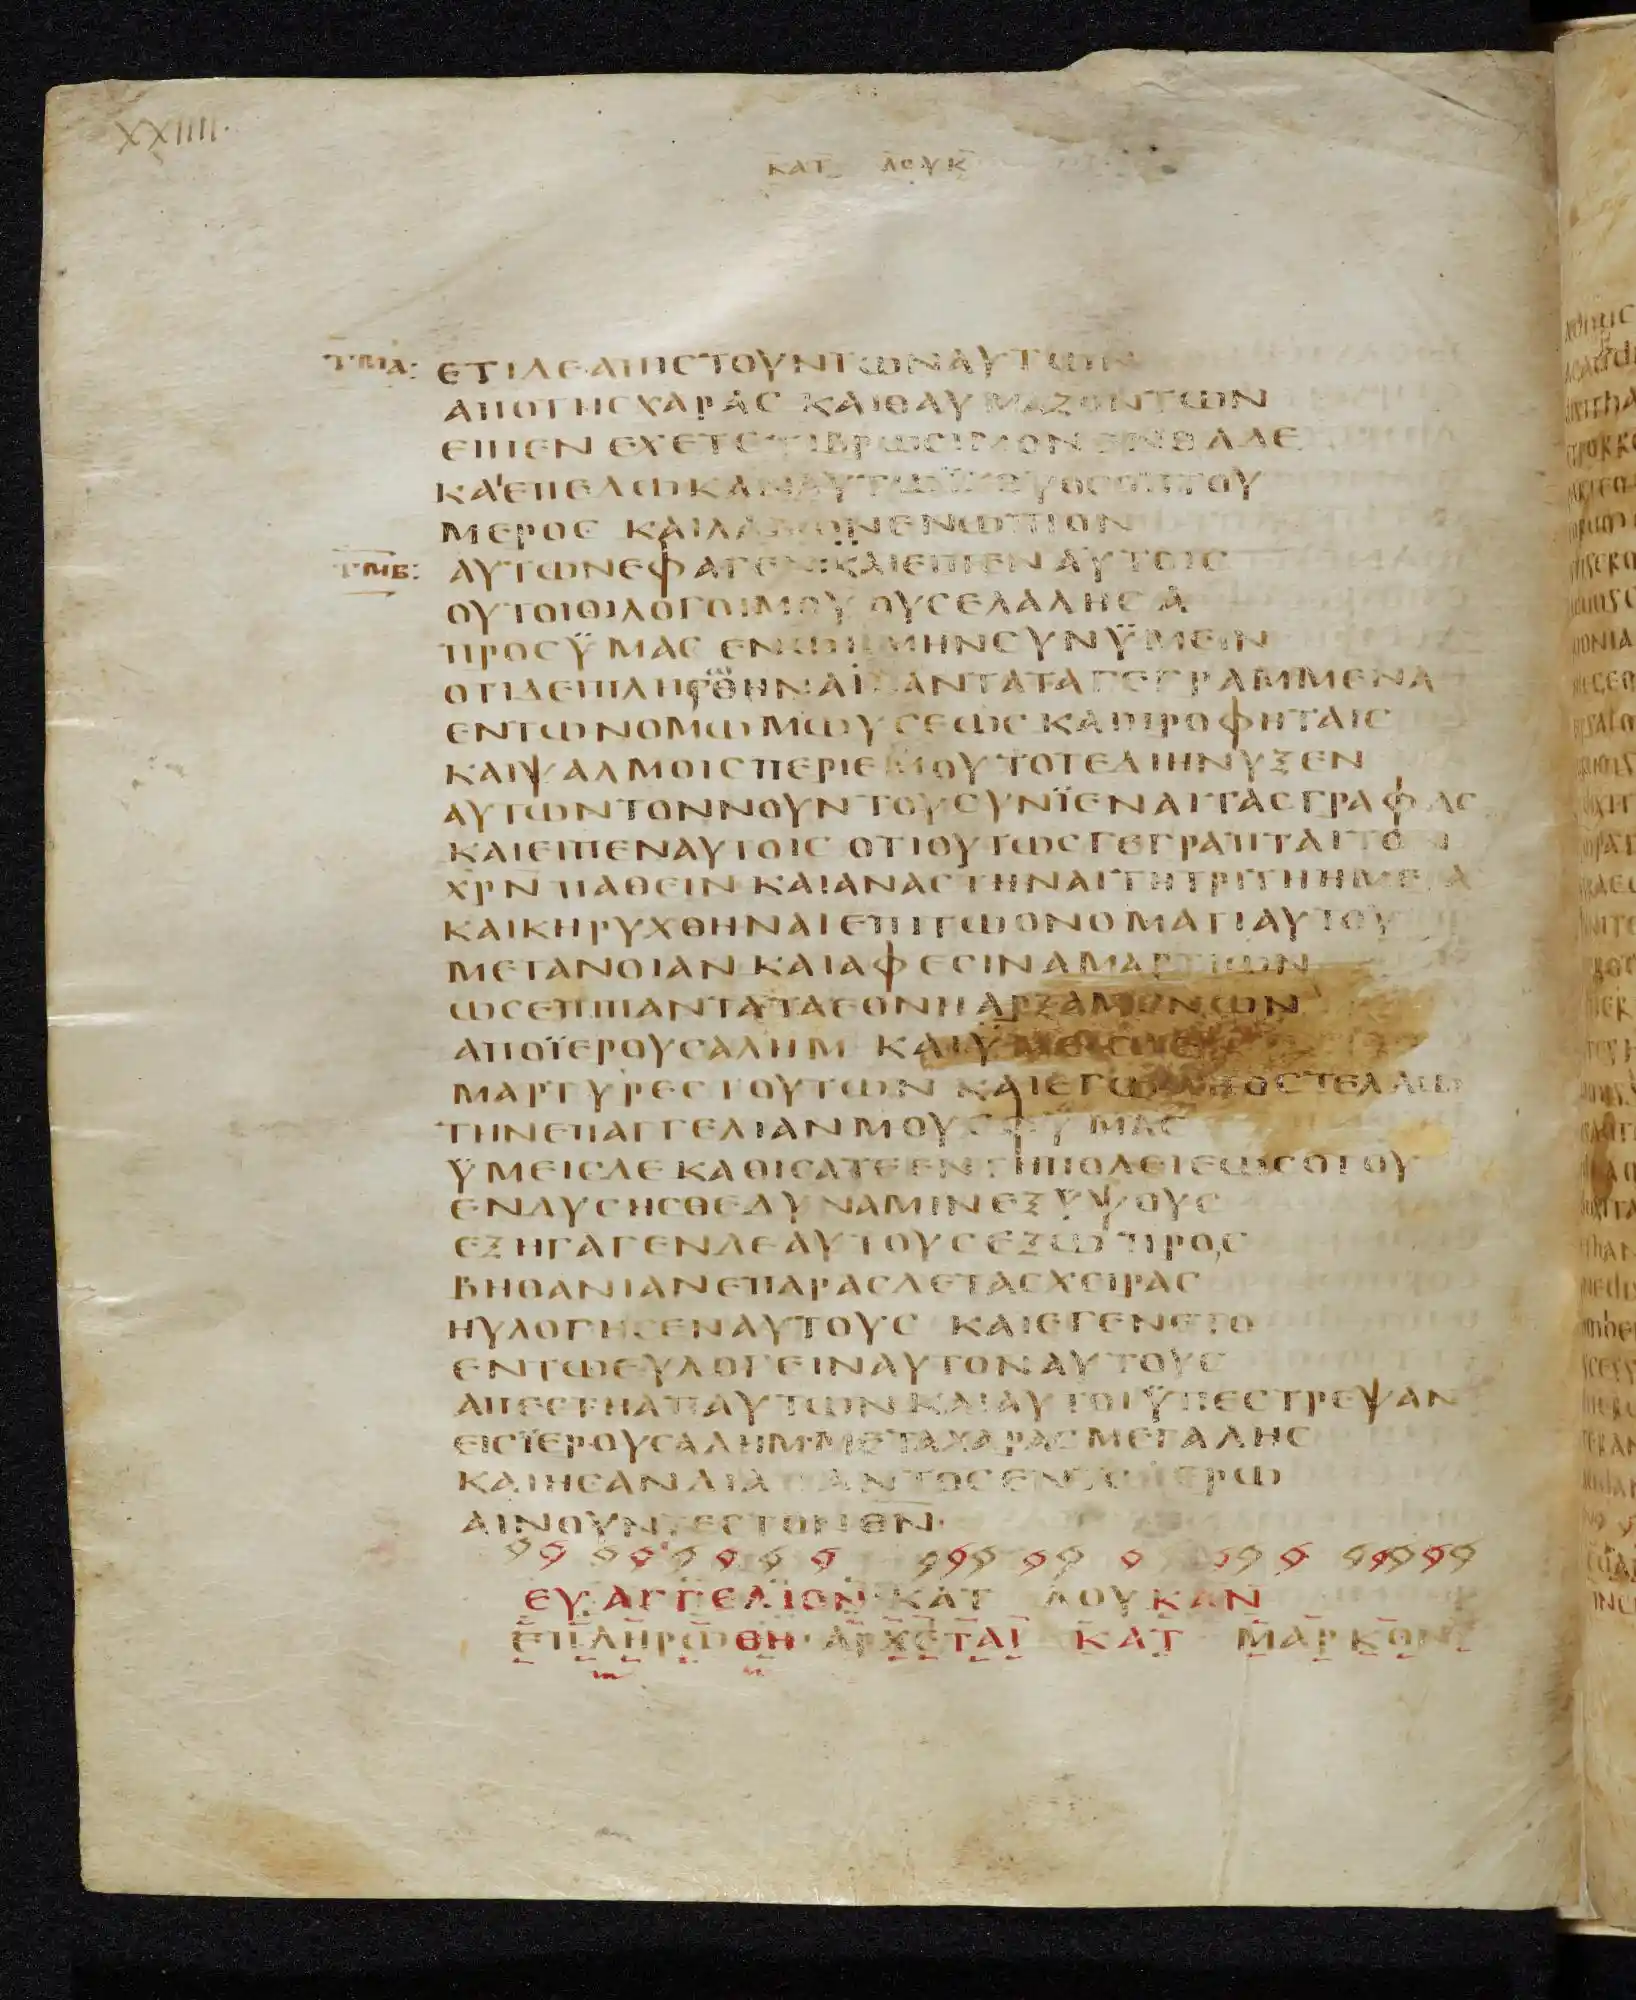 XXIIII·
ΚΑΤ ΛΟΥΚ
ΤΜΑ: ΕΤΙΔΕΑΠΙCΤΟΥΝΤΩΝΑΥΤΩΝ
ΑΠΟΤΗCΧΑΡΑC ΚΑΙΘΑΥΜΑΖΟΝΤΩΝ
ΕΙΠΕΝ ΕΧΕΤΕ ΤΙΒΡΩCΙΜΟΝ ΕΝΘΑΔΕ
ΚΑΙΕΠΕΔΩΚΑΝΑΥΤΩΪΧΘΥΟCΟΠΤΟΥ
ΜΕΡΟC ΚΑΙΛΑΒΩΝΕΝΩΠΙΟΝ
ΤΜΒ: ΑΥΤΩΝΕΦΑΓΕΝ:ΚΑΙΕΙΠΕΝ ΑΥΤΟΙC
ΟΥΤΟΙΟΙΛΟΓΟΙΜΟΥ ΟΥCΕΛΑΛΗCΑ
ΠΡΟCΫΜΑC ΕΝΩΗΜΗΝCΥΝΫΜΕΙΝ
ΟΤΙΔΕΙΠΛΗΡΩΘΗΝΑΙΠΑΝΤΑΤΑΓΕΓΡΑΜΜΕΝΑ
ΕΝΤΩΝΟΜΩΜΩΥCΕΩC ΚΑΙΠΡΟΦΗΤΑΙC
ΚΑΙΨΑΛΜΟΙCΠΕΡΙΕΜΟΥΤΟΤΕΔΙΗΝΥΞΕΝ
ΑΥΤΩΝΤΟΝΝΟΥΝ ΤΟΥCΥΝΪΕΝΑΙΤΑCΓΡΑΦΑC
ΚΑΙΕΙΠΕΝΑΥΤΟΙC ΟΤΙΟΥΤΩCΓΕΓΡΑΠΤΑΙΤΟΝ
ΧΡΝ ΠΑΘΕΙΝ ΚΑΙΑΝΑCΤΗΝΑΙΤΗΤΡΙΤΗΗΜΕΡΑ
ΚΑΙΚΗΡΥΧΘΗΝΑΙΕΠΙΤΩΟΝΟΜΑΤΙΑΥΤΟΥ
ΜΕΤΑΝΟΙΑΝ ΚΑΙΑΦΕCΙΝΑΜΑΡΤΙΩΝ
ΩCΕΠΙΠΑΝΤΑΤΑΕΘΝΗΑΡΞΑΜΕΝΩΝ
ΑΠΟΪΕΡΟΥCΑΛΗΜ ΚΑΙΫΜΕΙCΔΕ
ΜΑΡΤΥΡΕCΤΟΥΤΩΝ ΚΑΙΕΓΩΑΠΟCΤΕΛΛΩ
ΤΗΝΕΠΑΓΓΕΛΙΑΝΜΟΥ ΕΦΫΜΑC
ΫΜΕΙCΔΕ ΚΑΘΙCΑΤΕΕΝΤΗΠΟΛΕΙΕΩCΟΤΟΥ
ΕΝΔΥCΗCΘΕΔΥΝΑΜΙΝΕΞΫΨΟΥC
ΕΞΗΓΑΓΕΝΔΕΑΥΤΟΥCΕΞΩ ΠΡΟC
ΒΗΘΑΝΙΑΝΕΠΑΡΑCΔΕΤΑCΧΕΙΡΑC
ΗΥΛΟΓΗCΕΝΑΥΤΟΥC ΚΑΙΕΓΕΝΕΤΟ
ΕΝΤΩΕΥΛΟΓΕΙΝΑΥΤΟΝΑΥΤΟΥC
ΑΠΕCΤΗΑΠΑΥΤΩΝΚΑΙΑΥΤΟΙΫΠΕCΤΡΕΨΑΝ
ΕΙCΪΕΡΟΥCΑΛΗΜ·ΜΕΤΑΧΑΡΑCΜΕΓΑΛΗC
ΚΑΙΗCΑΝΔΙΑΠΑΝΤΟCΕΝΤΩΪΕΡΩ
ΑΙΝΟΥΝΤΕCΤΟΝΘΝ·
ΕΥΑΓΓΕΛΙΟΝ·ΚΑΤ ΛΟΥΚΑΝ
ΕΠΛΗΡΩΘΗ·ΑΡΧΕΤΑΙ ΚΑΤ ΜΑΡΚΟΝ